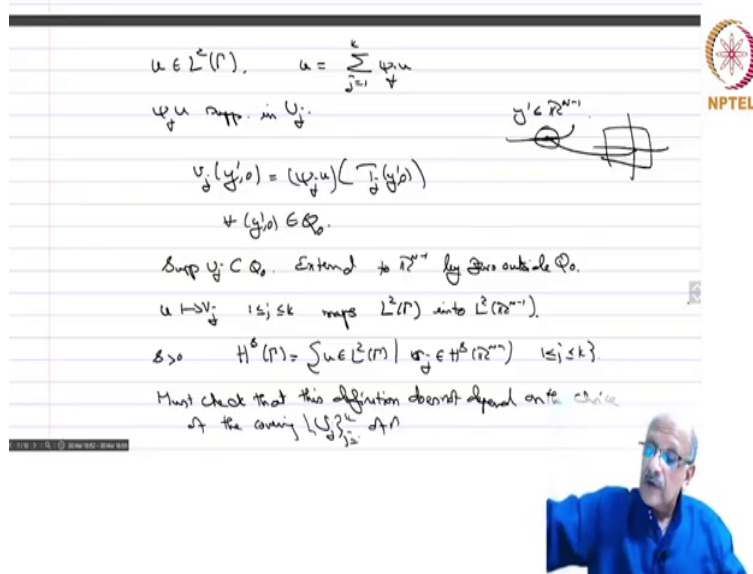 u ∈ L²(Γ). u = Σ_{j=1}^{k} ψ_j u
ψ_j u supp. in U_j.
y' ∈ ℝ^{N-1}.
NPTEL
v_j(y',0) = (ψ_j u)(T_j(y',0))
∀ (y',0) ∈ Q₀.
Supp v_j ⊂ Q₀. Extend to ℝ^{N-1} by zero outside Q₀.
u ↦ v_j 1≤j≤k maps L²(Γ) into L²(ℝ^{N-1}).
s>0 H^s(Γ) = {u ∈ L²(Γ) | v_j ∈ H^s(ℝ^{N-1}) 1≤j≤k}.
Must check that this definition does not depend on the choice
of the covering {U_j}_{j=1}^{k} of